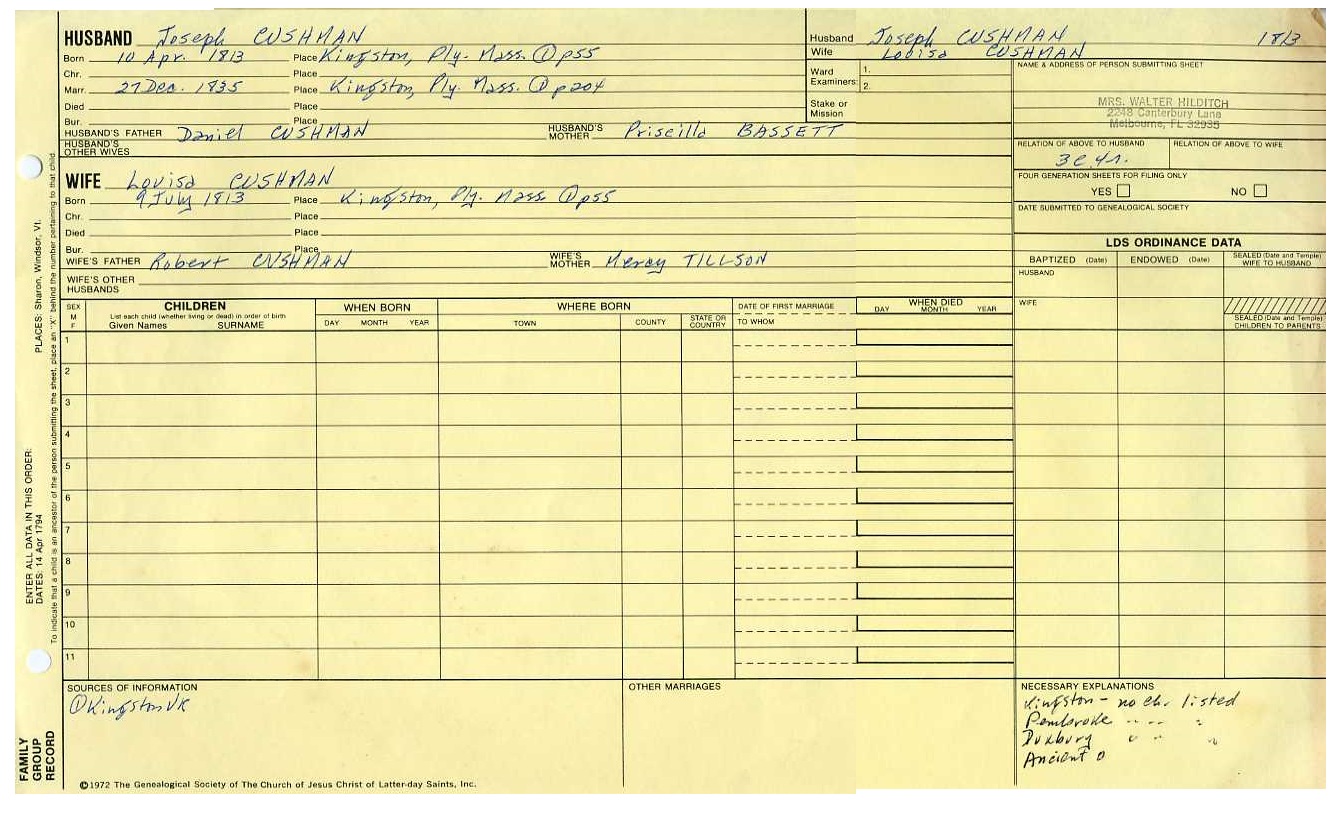 HUSBAND Joseph CUSHMAN
Born 10 Apr. 1813 Place Kingston, Ply. Mass. ① p55
Chr. Place
Marr. 27 Dec. 1835 Place Kingston, Ply. Mass. ① p204
Died Place
Bur. Place
HUSBAND'S FATHER Daniel CUSHMAN HUSBAND'S MOTHER Priscilla BASSETT
HUSBAND'S OTHER WIVES
WIFE Louisa CUSHMAN
Born 9 July 1813 Place Kingston, Ply. Mass. ① p55
Chr. Place
Died Place
Bur. Place
WIFE'S FATHER Robert CUSHMAN WIFE'S MOTHER Mercy TILLSON
WIFE'S OTHER HUSBANDS
Husband Joseph CUSHMAN 1813
Wife Louisa CUSHMAN
Ward Examiners: 1.
2.
Stake or Mission
NAME & ADDRESS OF PERSON SUBMITTING SHEET
MRS. WALTER HILDITCH
2248 Canterbury Lane
Melbourne, FL 32935
RELATION OF ABOVE TO HUSBAND RELATION OF ABOVE TO WIFE
3c 4r.
FOUR GENERATION SHEETS FOR FILING ONLY
YES NO
DATE SUBMITTED TO GENEALOGICAL SOCIETY
LDS ORDINANCE DATA
BAPTIZED (Date) ENDOWED (Date) SEALED (Date and Temple) WIFE TO HUSBAND
HUSBAND
WIFE
SEALED (Date and Temple) CHILDREN TO PARENTS
SEX M F
CHILDREN
List each child (whether living or dead) in order of birth
Given Names SURNAME
WHEN BORN
DAY MONTH YEAR
WHERE BORN
TOWN COUNTY STATE OR COUNTRY
DATE OF FIRST MARRIAGE
TO WHOM
WHEN DIED
DAY MONTH YEAR
1
2
3
4
5
6
7
8
9
10
11
SOURCES OF INFORMATION
① Kingston VR
OTHER MARRIAGES
NECESSARY EXPLANATIONS
Kingston - no ch. listed
Pembroke " " "
Duxbury " " "
Ancient
©1972 The Genealogical Society of The Church of Jesus Christ of Latter-day Saints, Inc.
ENTER ALL DATA IN THIS ORDER:
DATES: 14 Apr 1794 PLACES: Sharon, Windsor, Vt.
To indicate that a child is an ancestor of the person submitting the sheet, place an "X" behind the number pertaining to that child.
FAMILY GROUP RECORD